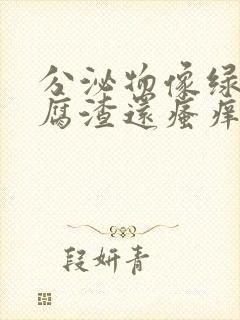 分泌物像绿
腐渣還瘙痒
段妍青